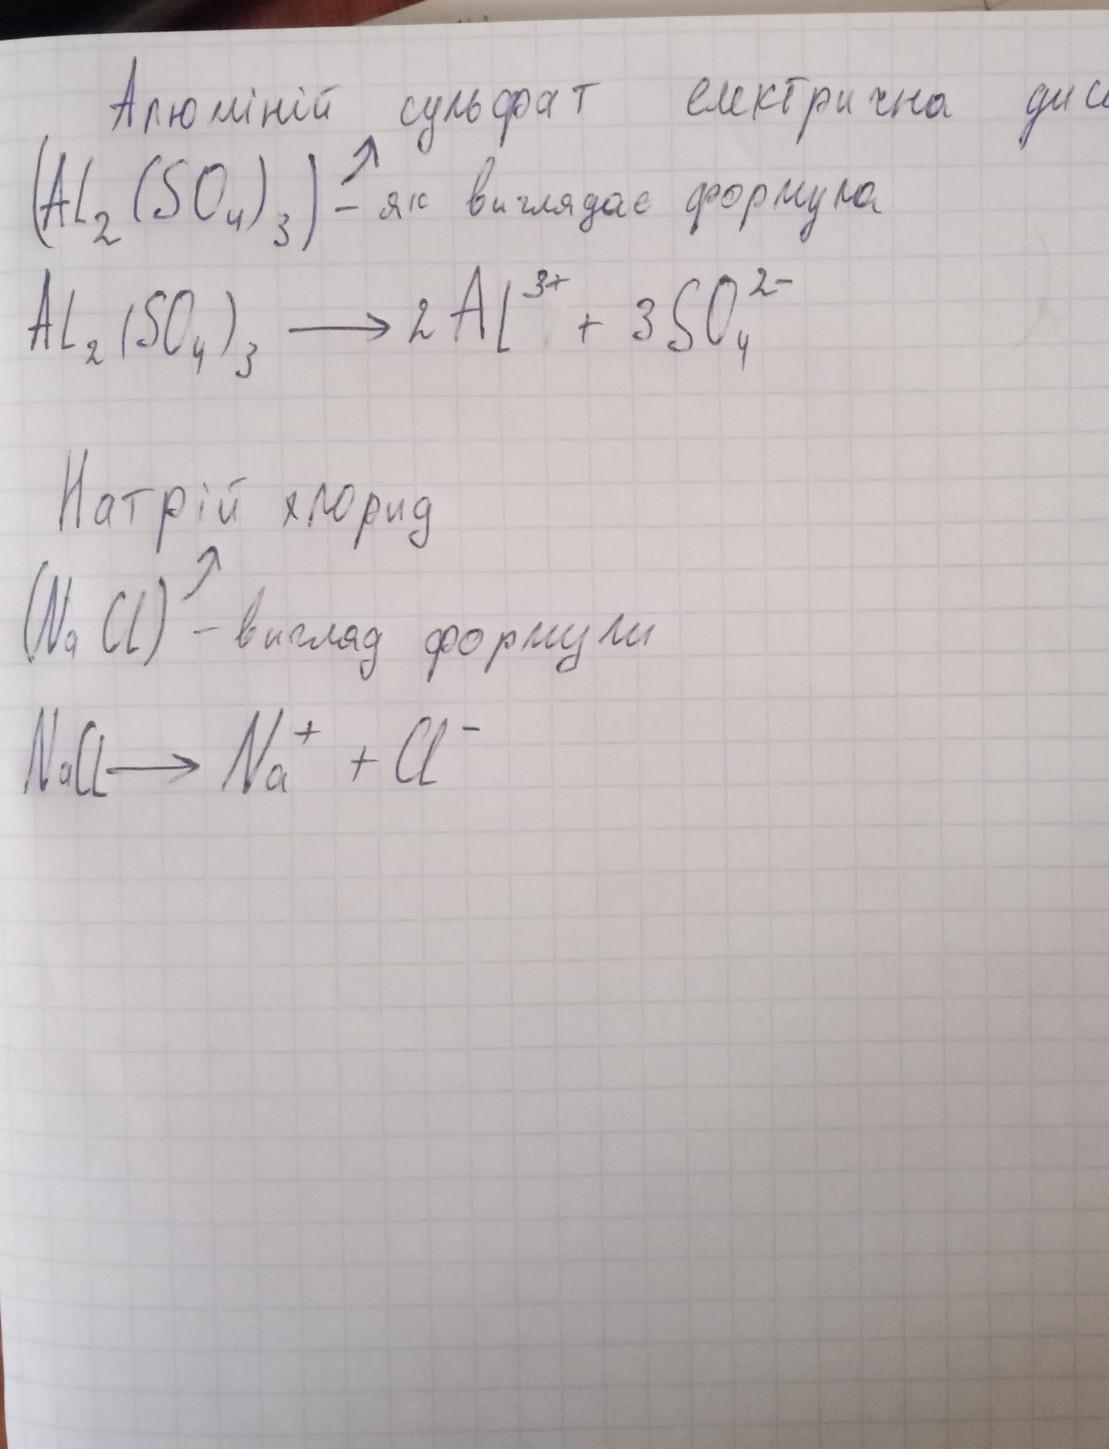 Алюміній сульфат електрична дис
(Al₂(SO₄)₃) ↗ - як виглядає формула
Al₂(SO₄)₃ → 2Al³⁺ + 3SO₄²⁻
Натрій хлорид
(NaCl) ↗ - вигляд формули
NaCl → Na⁺ + Cl⁻